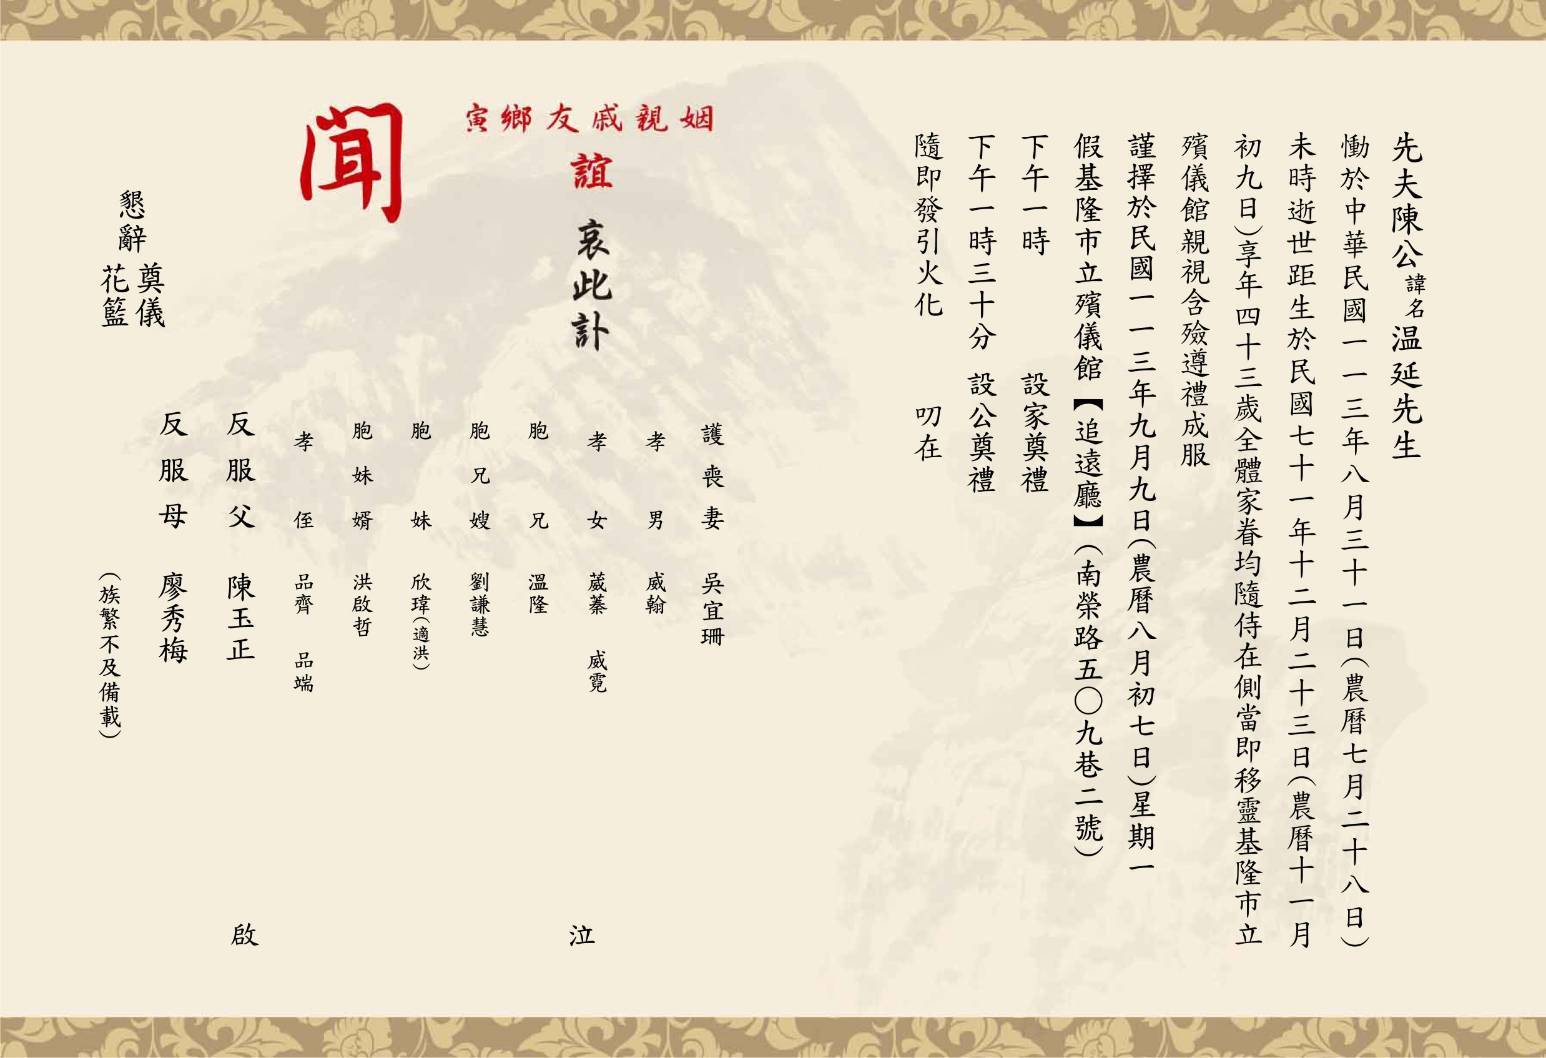 先夫陳公諱名温延先生
慟於中華民國一一三年八月三十一日(農曆七月二十八日)
未時逝世距生於民國七十一年十二月二十三日(農曆十一月
初九日)享年四十三歲全體家眷均隨侍在側當即移靈基隆市立
殯儀館親視含殮遵禮成服
謹擇於民國一一三年九月九日(農曆八月初七日)星期一
假基隆市立殯儀館【追遠廳】(南榮路五〇九巷二號)
下午一時 設家奠禮
下午一時三十分 設公奠禮
隨即發引火化 叨在
姻親戚友鄉寅
誼 哀此訃
聞
護喪妻 吳宜珊
孝男 威翰
孝女 葳蓁 威霓
胞兄 溫隆
胞兄嫂 劉謙慧
胞妹 欣瑋(適洪)
胞妹婿 洪啟哲
孝侄 品齊 品端
反服父 陳玉正
反服母 廖秀梅
(族繁不及備載)
泣
啟
懇辭
奠儀
花籃